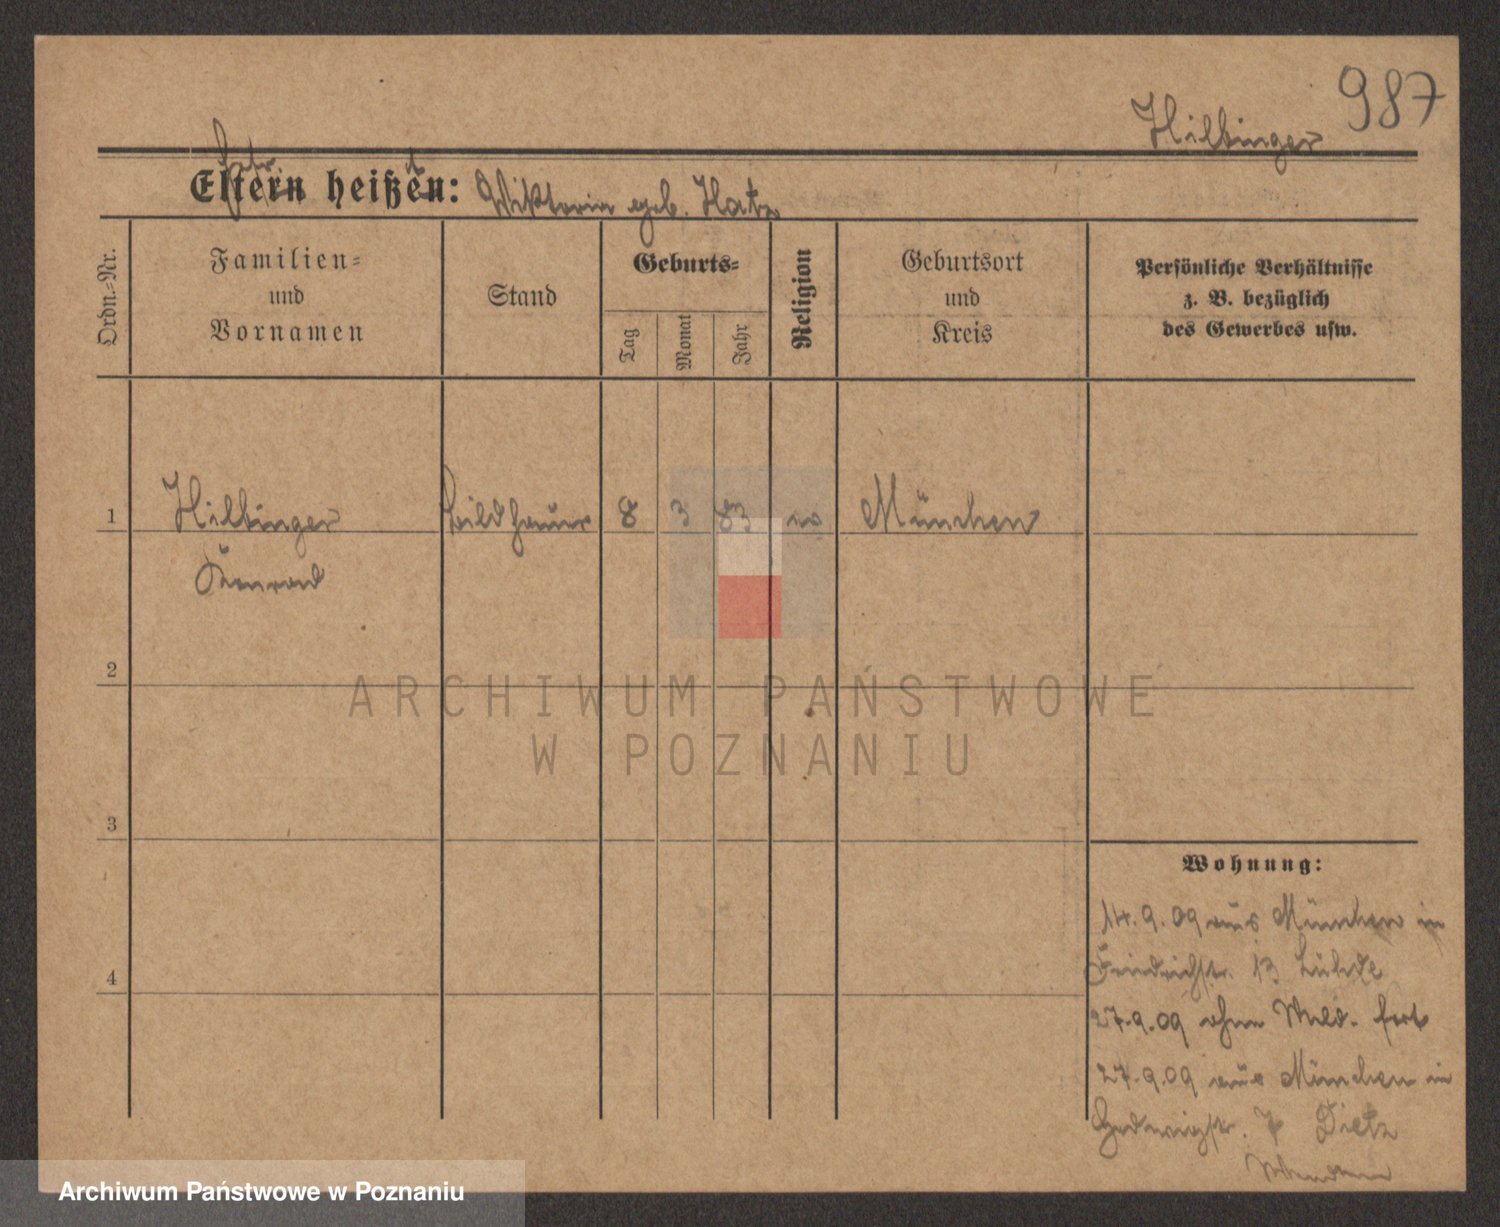 987
Hilbinger
Eltern heißen: Wiktoria geb. Hatz
Ordn.-Nr.
Familien-
und
Vornamen
Stand
Geburts-
Tag
Monat
Jahr
Religion
Geburtsort
und
Kreis
Persönliche Verhältnisse
z. B. bezüglich
des Gewerbes usw.
1 Hilbinger Bildhauer 8 3 83 München
Konrad
2
3
4
Wohnung:
14.9.09 aus München in
Friedrichstr. 13
27.9.09 ohne Meld. fort
27.9.09 aus München in
Hedwigstr. 7 Dietz
ARCHIWUM PAŃSTWOWE
W POZNANIU
Archiwum Państwowe w Poznaniu